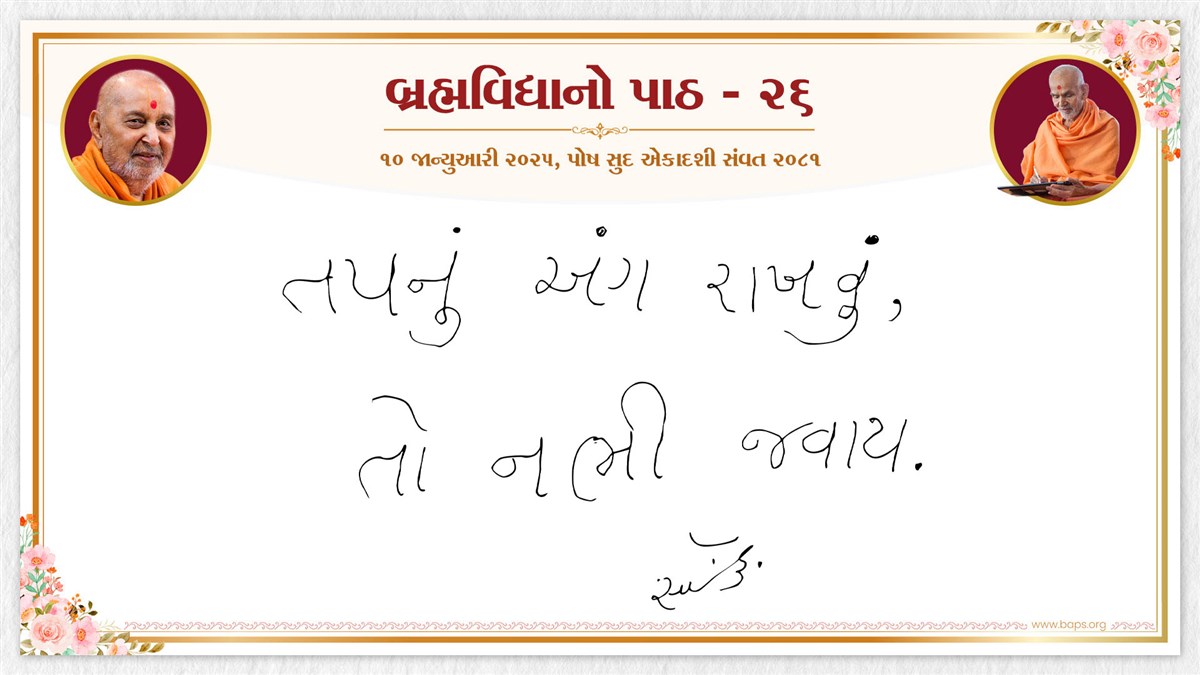 બ્રહ્મવિદ્યાનો પાઠ - ૨૬
૧૦ જાન્યુઆરી ૨૦૨૫, પોષ સુદ એકાદશી સંવત ૨૦૮૧
તપનું અંગ રાખવું,
તો નભી જવાય.
www.baps.org